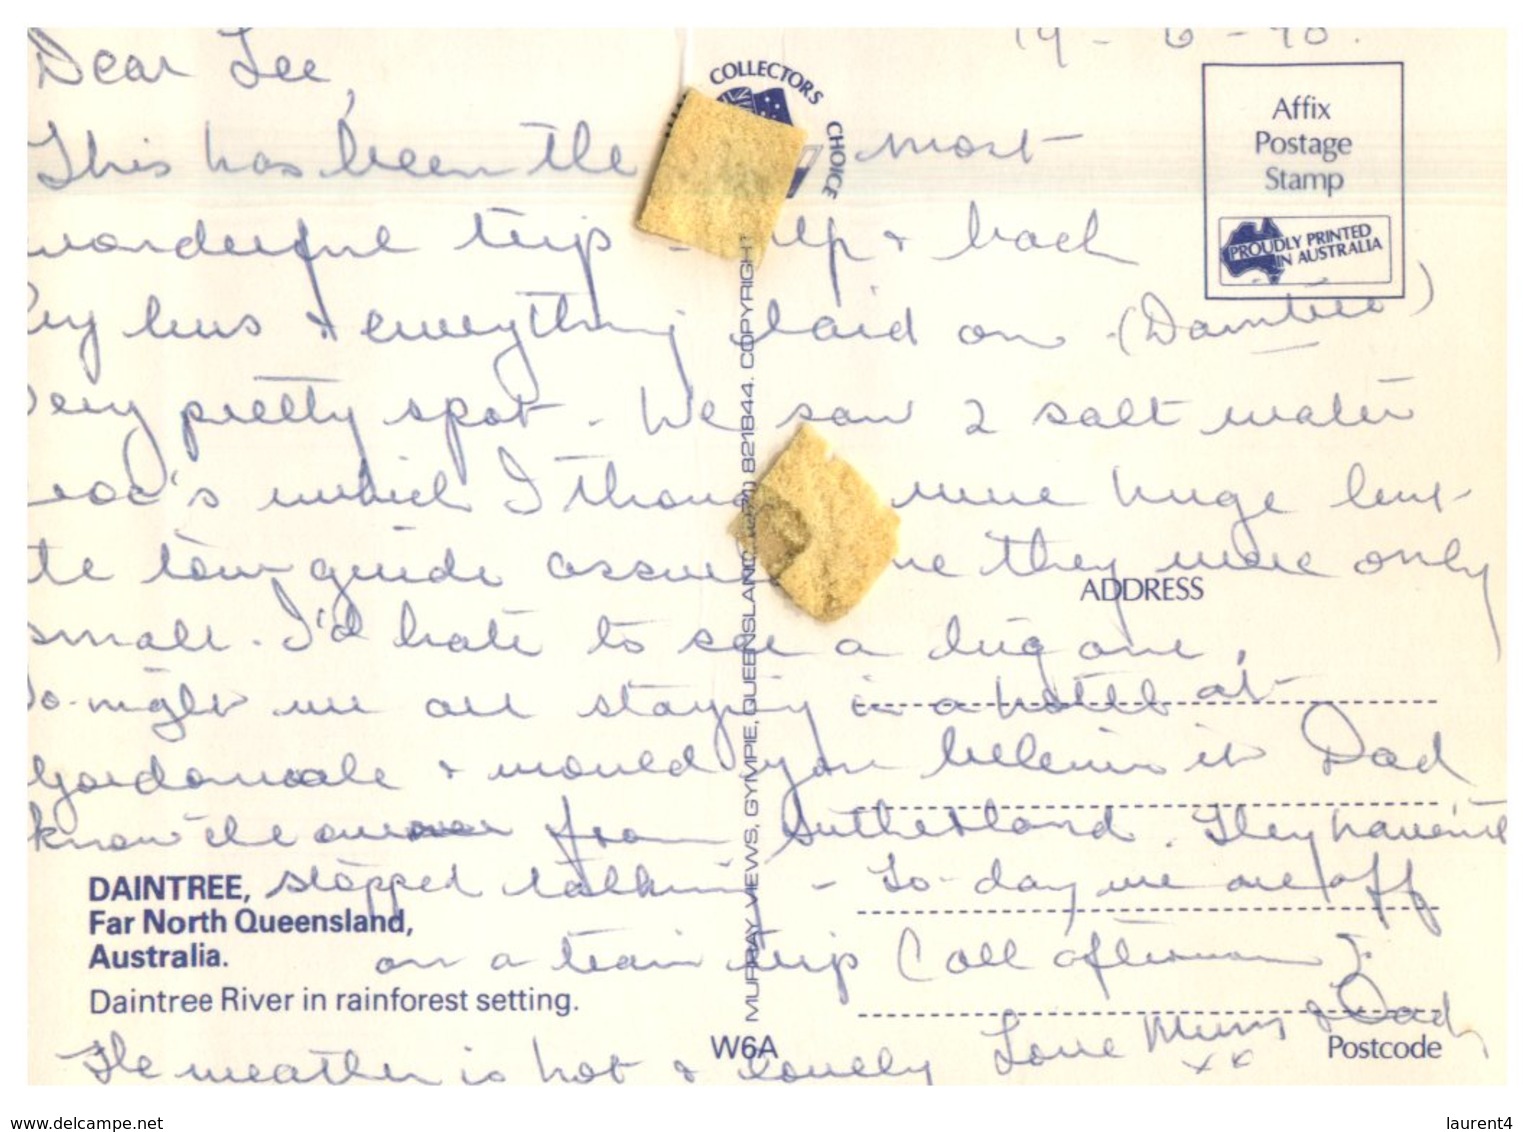 19 - 6 - 90.
Dear Lee,
COLLECTORS
CHOICE
Affix
Postage
Stamp
PROUDLY PRINTED
IN AUSTRALIA
This has been the most
wonderful trip - up & back
by bus & everything laid on - (Daintree)
very pretty spot - We saw 2 salt water
croc's which I thou were huge but
te tour guide assu me they were only
small. I'd hate to see a big one.
To-night we are staying in a hotel at
Gordonvale & would you believe it Dad
knew the owner from Sutherland. They haven't
stopped talking - To-day we are off
on a train trip (all afternoon).
The weather is hot & lovely Love Mum & Dad
xx
ADDRESS
DAINTREE,
Far North Queensland,
Australia.
Daintree River in rainforest setting.
MURRAY VIEWS, GYMPIE, QUEENSLAND 821844. COPYRIGHT
W6A
Postcode
www.delcampe.net
laurent4